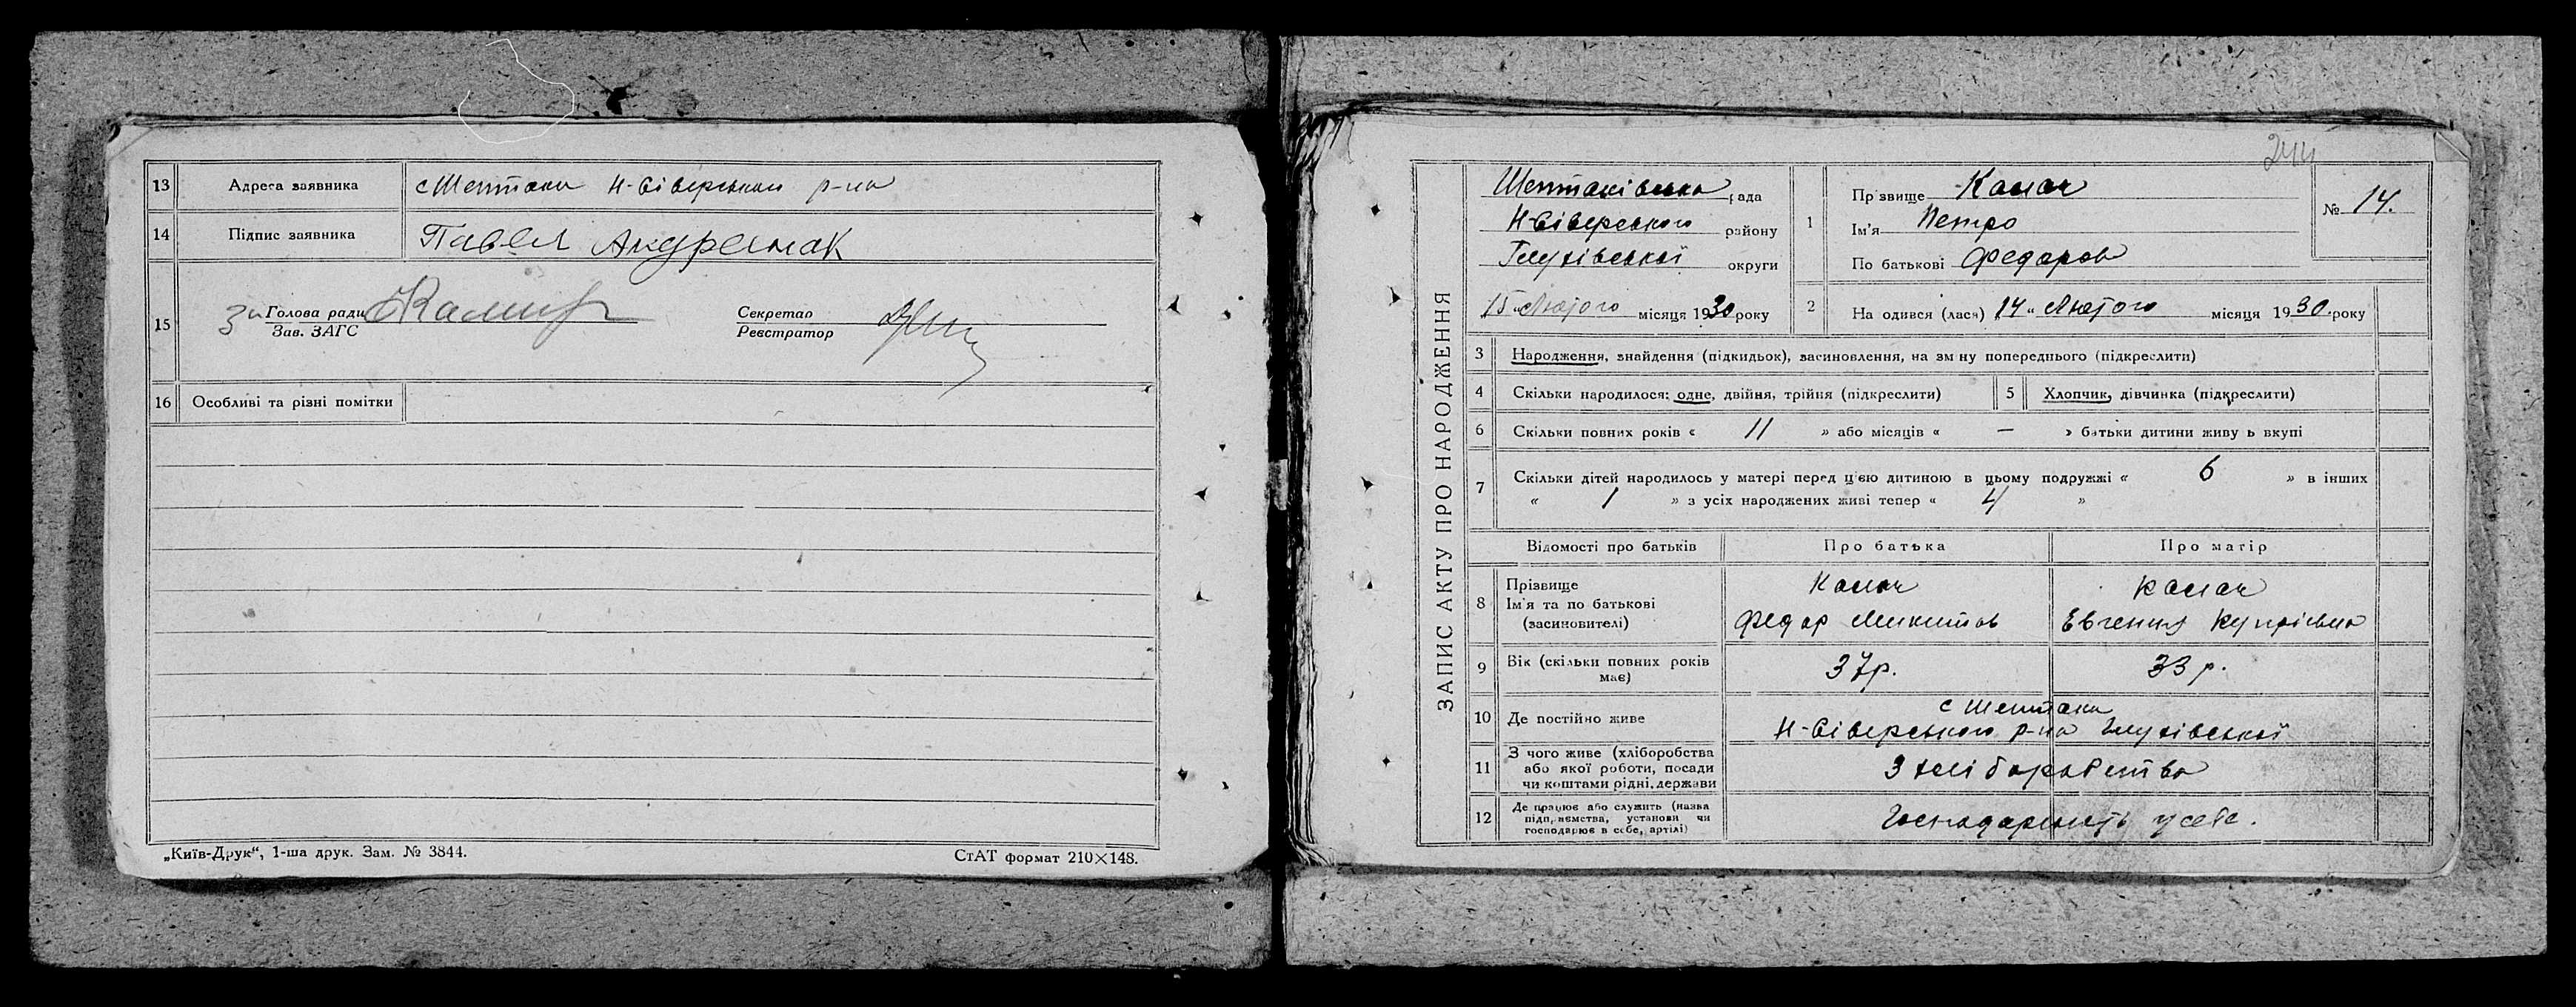 13 Адреса заявника с Шептаки Н-Сіверського р-на
14 Підпис заявника Павел
15 За Голова ради
Зав. ЗАГС
Секретар
Реєстратор
16 Особливі та різні помітки
„Київ-Друк“, 1-ша друк. Зам. № 3844.
СтАТ формат 210×148.
244
ЗАПИС АКТУ ПРО НАРОДЖЕННЯ
Шептаківська рада
Н-Сіверського району
Глухівської округи
15 „Лютого місяця 1930 року
1 Прізвище
Ім'я Петро
По батькові Федоров
№ 14.
2 Народився (лася) „14“ Лютого місяця 1930 року
3 Народження, знайдення (підкидьок), засиновлення, на зміну попереднього (підкреслити)
4 Скільки народилося: одне, двійня, трійня (підкреслити)
5 Хлопчик, дівчинка (підкреслити)
6 Скільки повних років « 11 » або місяців « — » батьки дитини живуть вкупі
7 Скільки дітей народилось у матері перед цією дитиною в цьому подружжі « 6 » в інших
« 1 » з усіх народжених живі тепер « 4 »
Відомості про батьків Про батька Про матір
8 Прізвище
Ім'я та по батькові
(засиновителі)
Федор Микитов
Евгения Купріевна
9 Вік (скільки повних років має) 37р. 33 р.
10 Де постійно живе с Шептаки
Н-Сіверського р-на Глухівської
11 З чого живе (хліборобства
або якої роботи, посади
чи коштами рідні, держави
З хліборобства
12 Де працює або служить (назва
підприємства, установи чи
господарює в себе, артілі)
Господарюють у себе.